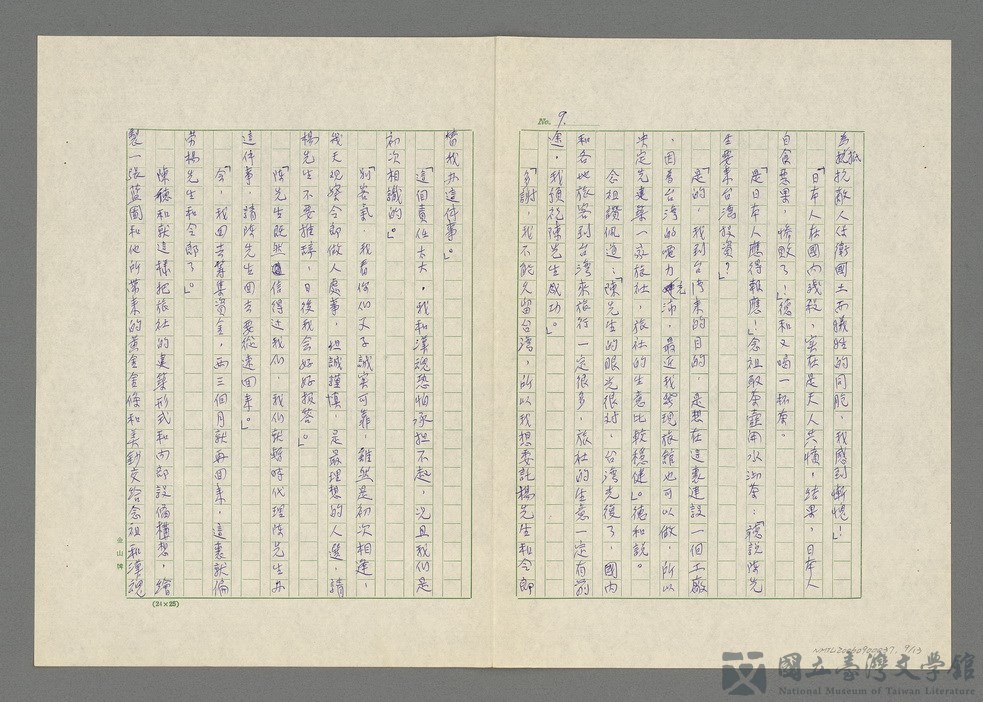 No. 9.
為抵抗敵人保衛國土而犧牲的同胞，我感到慚愧！」
「日本人在國內濺殺，實在是天人共憤，結果，日本人
自食惡果，慘敗了！」德和又喝一杯茶。
「是日本人應得報應！」念祖取茶壺用水沏茶：「聽說陳先
生要來台湾投資？」
「是的，我到台湾來的目的，是想在這裏建設一個工廠
，因着台湾的電力充沛，最近我發現旅館也可以做，所以
決定先建築一家旅社，旅社的生意比較穩健。」德和說。
念祖讚佩道：「陳先生的眼光很对，台湾光復了，國內
和各地旅客到台湾來旅行一定很多，旅社的生意一定有前
途，我預祝陳先生成功。」
「多謝，我不能久留台湾，所以我想委託楊先生和令郎
替我办這件事。」
「這個責任太大，我和漢魂恐怕承担不起，況且我们是
初次相識的。」
「別客氣，我看你们父子誠实可靠，雖然是初次相逢，
幾天观察令郎做人處事，坦誠謹慎，是最理想的人選，請
楊先生不要推辞，日後我会好好报答。」
「陳先生既然信得过我们，我们就暫時代理陳先生办
這件事，請陳先生回去要從速回來。」
「会，我回去筹集資金，兩三個月就再回來，這裏就偏
劳楊先生和令郎了。」
陳德和就這樣把旅社的建築形式和內部設備構想，繪
製一張藍圖和他所帶來的黃金金條和美鈔交給念祖和漢魂
金山牌
(24×25)
NMTL20060900037. 9/13
國立臺灣文學館
National Museum of Taiwan Literature